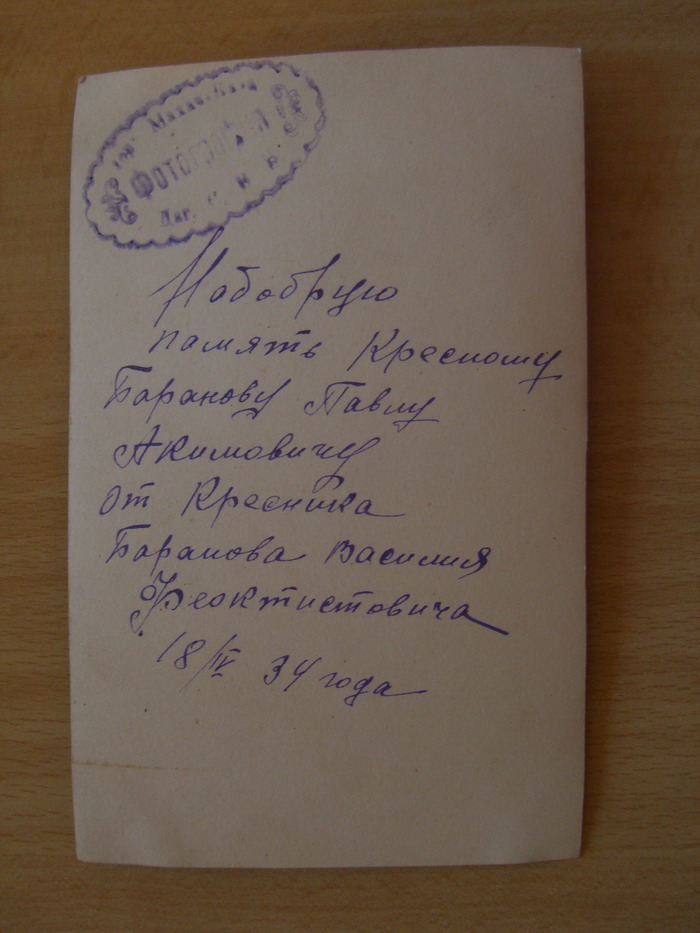 гор. Махач-Кала
ФОТОГРАФИЯ
Даг.
На добрую
память Кресному
Баранову Павлу
Акимовичу
от Кресника
Баранова Василия
Феоктистовича
18/IV 34 года